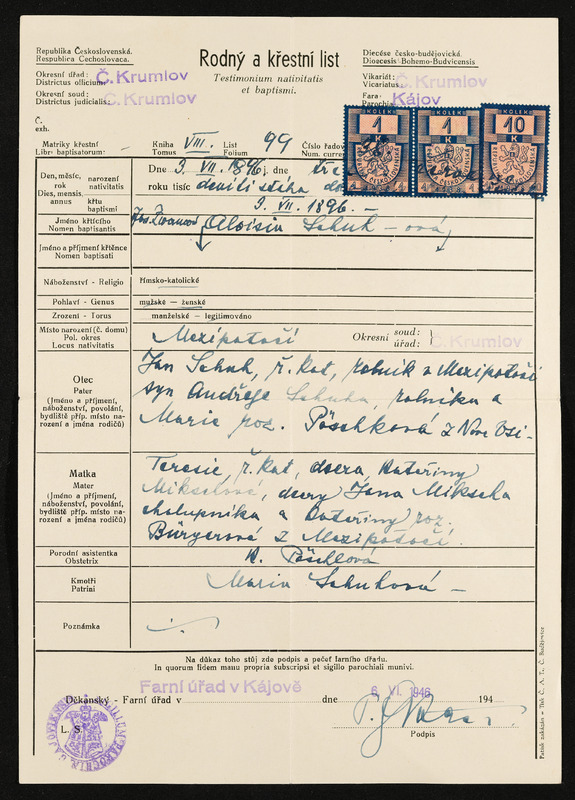 Republika Československá.
Respublica Čechoslovaca.
Okresní úřad:
Districtus officium:
Č. Krumlov
Okresní soud:
Districtus judicialis:
Č. Krumlov
Č.
exh.
Rodný a křestní list
Testimonium nativitatis
et baptismi.
Diecése česko-budějovická.
Dioecesis Bohemo-Budvicensis
Vikariát:
Vicariatus:
Fara:
Parochia
Kájov
KOLEK 1 K
KOLEK 1 K
KOLEK 10 K
Matriky křestní
Libri baptisatorum
Kniha VIII. List 99 Číslo řadov
Tomus Folium Num. curren
Den, měsíc, narození
rok nativitatis
Dies, mensis,
annus křtu
baptismi
Dne 3. VII. 1896. j. dne
roku tisíc
9. VII. 1896. —
Jméno křtícího
Nomen baptisantis
Jméno a příjmení křtěnce
Nomen baptisati
Aloisia Schuh - ová
Náboženství - Religio
římsko-katolické
Pohlaví - Genus
mužské — ženské
Zrození - Torus
manželské — legitimováno
Místo narození (č. domu)
Pol. okres
Locus nativitatis
Mezipotočí
Okresní soud:
úřad:
Č. Krumlov
Otec
Pater
(Jméno a příjmení,
náboženství, povolání,
bydliště příp. místo na-
rození a jména rodičů)
Jan Schuh, ř. kat, rolník v Mezipotočí
syn Andřeje Schuha, rolníka a
Marie roz. Pöschková z Nové Vsi.
Matka
Mater
(Jméno a příjmení,
náboženství, povolání,
bydliště příp. místo na-
rození a jména rodičů)
Teresie, ř. kat, dcera Kateřiny
Mikschové, dcery Jana Mikscha
chalupníka a Kateřiny roz.
Bürgerové z Mezipotočí.
Porodní asistentka
Obstetrix
K. Pöschlová
Kmotři
Patrini
Maria Schuhová —
Poznámka
Na důkaz toho stůj zde podpis a pečeť farního úřadu.
In quorum fidem manu propria subscripsi et sigillo parochiali muniví.
Děkanský - Farní úřad v
Farní úřad v Kájově
dne 6. VI. 1946 194
L. S.
Podpis
Patisk zakázán — Tisk Č. A. T., Č. Budějovice